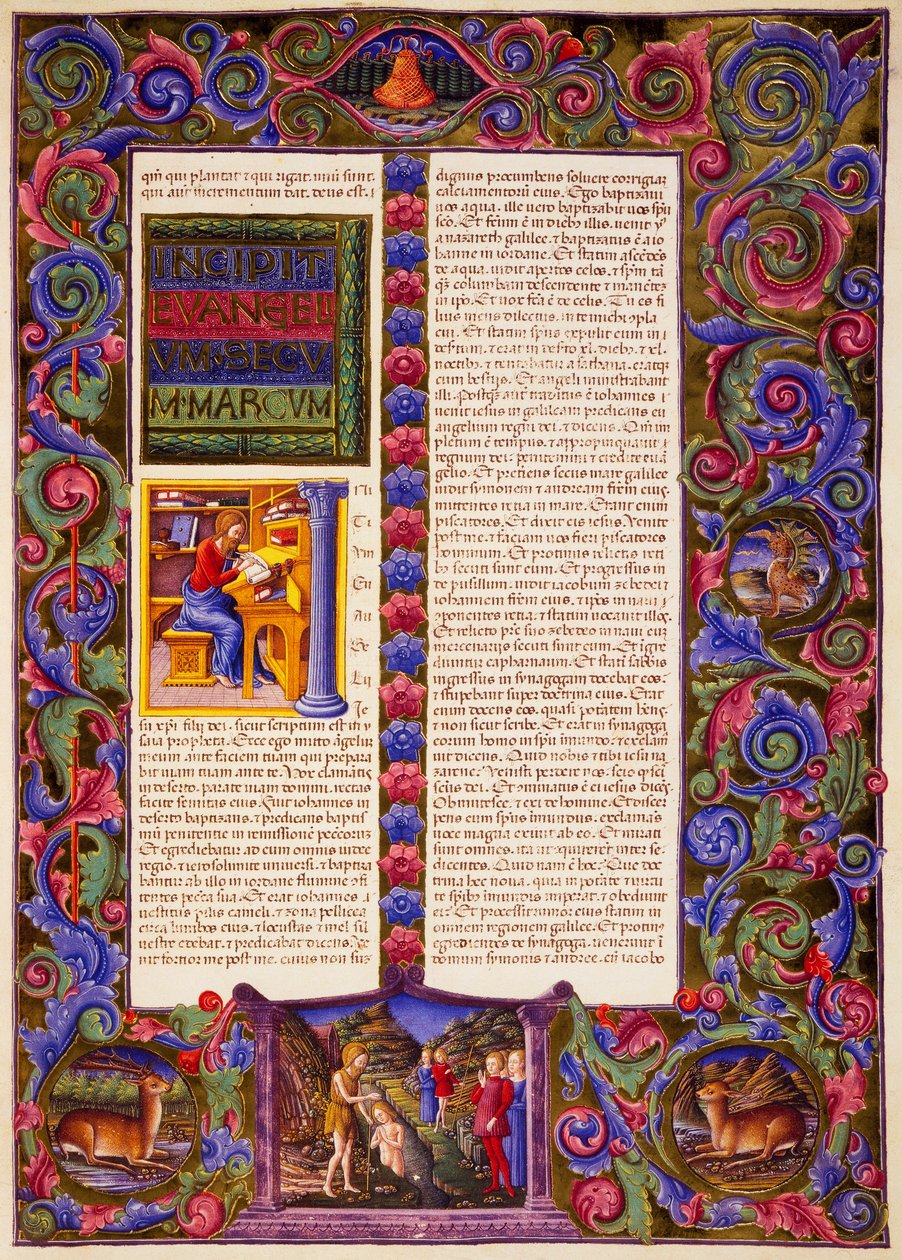 qm̃ qui plantat ⁊ qui rigat. unũ sunt.
qui aut̃ incrementum dat. deus est.
INCIPIT
EVANGELI
VM·SECV
M·MARCVM
INI
TI
VM
EV
AN
GE
LIJ
Je
su xp̃i filij dei. sicut scriptum est in y
saia propheta. Ecce ego mitto ãgelũ
meum ante faciem tuam qui prepara
bit uiam tuam ante te. Vox clamãtis
in deserto. parate uiam domini. rectas
facite semitas eius. Fuit iohannes in
deserto baptizans. ⁊ predicans baptis
mũ penitentie in remissionẽ peccatoꝝ
Et egrediebatur ad eum omnis iudee
regio. ⁊ ierosolimite uniuersi. ⁊ baptiza
bantur ab illo in iordane flumine ꝯfi
tentes pecc̃a sua. Et erat iohannes
uestitus pilis cameli. ⁊ zona pellicea
circa lumbos eius. ⁊ locustas ⁊ mel sil
uestre edebat. ⁊ predicabat dicens. Ve
nit fortior me post me. cuius non suꝫ
dignus procumbens soluere corrigiaꝫ
calciamentorũ eius. Ego baptizaui
uos aqua. ille uero baptizabit uos spũ
sc̃o. Et factũ ẽ in diebꝫ illis. uenit yc̃
a nazareth galilee. ⁊ baptizatus ẽ a io
hanne in iordane. Et statim ascẽdẽs
de aqua. uidit apertos celos. ⁊ spm̃ tã
qꝫ columbam descendentẽ ⁊ manẽtẽ
in ip̃o. Et uox fc̃a ẽ de celis. Tu es fi
lius meus dilectus. in te michi ꝯpla
cui. Et statim spũs expulit eum in
desertum. ⁊ erat in deserto xl. diebꝫ. ⁊ xl.
noctibꝫ. ⁊ temtabatur a sathana. eratqꝫ
cum bestiis. Et angeli ministrabant
illi. Postqꝫ aut̃ traditus ẽ iohannes
uenit iesus in galileam predicans eu
angelium regni dei. ⁊ dicens. Qm̃ im
pletum ẽ tempus. ⁊ appropinquauit
regnum dei. penitemini ⁊ credite euã
gelio. Et preteriens secus mare galilee
uidit symonem ⁊ andream frẽm eiꝰ
mittentes retia in mare. Erant enim
piscatores. Et dixit eis iesus. Venite
post me. ⁊ faciam uos fieri piscatores
hominum. Et protinus relictis reti
bꝫ secuti sunt eum. Et progressus in
de pusillum. uidit iacobum zebedei ⁊
iohannem frẽm eius. ⁊ ip̃os in naui
ꝯponentes retia. ⁊ statim uocauit illos.
Et relicto pr̃e suo zebedeo in naui cuꝫ
mercenariis secuti sunt eum. Et igre
diuntur capharnaum. Et statĩ sabb̃is
ingressus in synagogam docebat eos.
⁊ stupebant super doctrina eius. Erat
enim docens eos. quasi potatem̃ hẽns.
⁊ non sicut scribe. Et erat in synagoga
eorum homo in spũ imundo. ⁊ exclam̃a
uit dicens. Quid nobis ⁊ tibi iesu na
zarene. Venisti perdere nos. scio qꝫ sci
scũs dei. Et cõminatus ẽ ei iesus dicẽs
Obmutesce. ⁊ exi de homine. Et discer
pens eum spũs imundus. exclamãs
uoce magna exiuit ab eo. Et mirati
sunt omnes. ita ut ꝯquirerẽt inter se
dicentes. Quid nam ẽ hoc. Que doc
trina hec noua. quia in potãte uirtu
te spĩbꝫ imũdis imperat. ⁊ obediunt
ei. Et processit rumor eius statim in
omnem regionem galilee. Et protinꝰ
egredientes de synagoga. uenerunt ĩ
domum symonis ⁊ andree. cũ iacobo